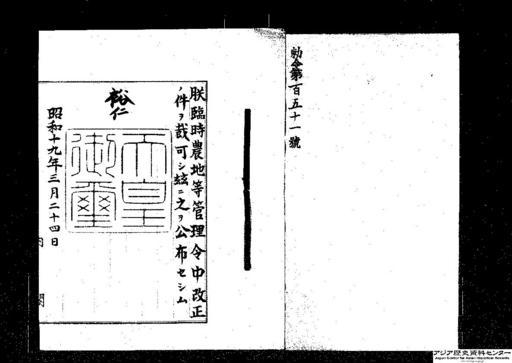 勅令第百五十一號
朕臨時農地等管理令中改正
ノ件ヲ裁可シ玆ニ之ヲ公布セシム
裕仁
天皇
御璽
昭和十九年三月二十四日
内閣
アジア歴史資料センター
Japan Center for Asian Historical Records